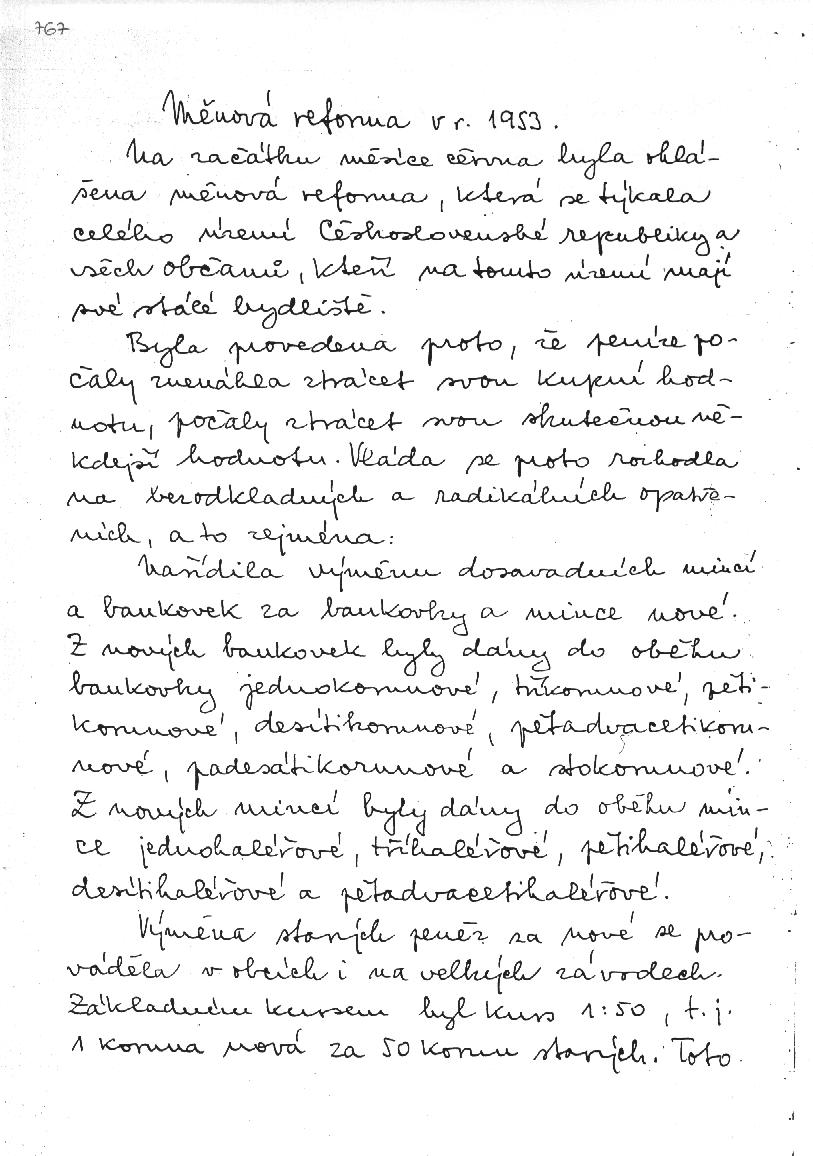 767
Měnová reforma v r. 1953.
Na začátku měsíce června byla ohlá-
šena měnová reforma, která se týkala
celého území Československé republiky a
všech občanů, kteří na tomto území mají
své stálé bydliště.
Byla provedena proto, že peníze po-
čaly znenáhla ztrácet svou kupní hod-
notu, počaly ztrácet svou skutečnou ně-
kdejší hodnotu. Vláda se proto rozhodla
na bezodkladných a radikálních opatře-
ních, a to zejména:
Nařídila výměnu dosavadních mincí
a bankovek za bankovky a mince nové.
Z nových bankovek byly dány do oběhu
bankovky jednokorunové, tříkorunové, pěti-
korunové, desítikorunové, pětadvacetikoru-
nové, padesátikorunové a stokorunové.
Z nových mincí byly dány do oběhu min-
ce jednohaléřové, tříhaléřové, pětihaléřové,
desítihaléřové a pětadvacetihaléřové.
Výměna starých peněz za nové se pro-
váděla v obcích i na velkých závodech.
Základním kursem byl kurs 1:50, t.j.
1 koruna nová za 50 korun starých. Toto